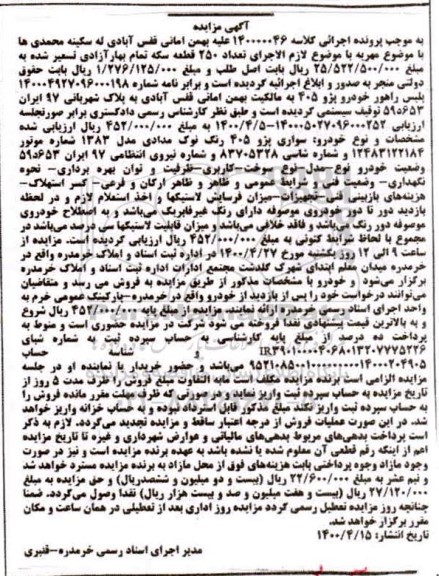 آگهی مزایده
به موجب پرونده اجرائی کلاسه ۱۴۰۰۰۰۰۴۶ علیه بهمن امانی قفس آبادی له سکینه محمدی ها
با موضوع مهریه با موضوع لازم الاجرای تعداد ۲۵۰ قطعه سکه تمام بهارآزادی تسعیر شده به
مبلغ ۲۵/۵۲۲/۵۰۰/۰۰۰ ریال بابت اصل طلب و مبلغ ۱/۲۷۶/۱۲۵/۰۰۰ ریال بابت حقوق
دولتی منجر به صدور و ابلاغ اجرائیه گردیده است و برابر نامه شماره ۱۴۰۰۰۴۹۲۷۰۹۶۰۰۰۱۹۸
پلیس راهور خودرو پژو ۴۰۵ به مالکیت بهمن امانی قفس آبادی به پلاک شهربانی ۹۷ ایران
۶۵۳د۵۹ توقیف سیستمی گردیده است و طبق نظر کارشناس رسمی دادگستری برابر صورتجلسه
ارزیابی ۱۴۰۰۰۵۰۲۷۰۹۶۰۰۰۲۵۲-۱۴۰۰/۴/۵ به مبلغ ۴۵۲/۰۰۰/۰۰۰ ریال ارزیابی شده
مشخصات و نوع خودرو: سواری پژو ۴۰۵ رنگ نوک مدادی مدل ۱۳۸۳ شماره موتور
۱۲۴۸۳۱۲۲۱۸۴ و شماره شاسی ۸۳۷۰۵۳۲۸ و شماره نیروی انتظامی ۹۷ ایران ۶۵۳د۵۹
وضعیت خودرو نوع-مدل-نوع سوخت-کاربری-ظرفیت و توان بهره برداری- نحوه
نگهداری- وضعیت فنی و شرایط عمومی و ظاهر و ظاهر ارکان و فرعی- کسر استهلاک-
هزینه‌های بازبینی فنی-تجهیزات-میزان فرسایش لاستیکها و اخذ استعلام لازم و در لحظه
بازدید دور تا دور خودروی موصوفه دارای رنگ غیرفابریک می‌باشد و به اصطلاح خودروی
موصوفه دور رنگ می‌باشد و فاقد خلافی می‌باشد و میزان قابلیت لاستیکها سی درصد می‌باشد در
مجموع با لحاظ شرایط کنونی به مبلغ ۴۵۲/۰۰۰/۰۰۰ ریال ارزیابی گردیده است. مزایده از
ساعت ۹ الی ۱۲ روز یکشنبه مورخ ۱۴۰۰/۴/۲۷ در اداره ثبت اسناد و املاک خرمدره واقع در
خرمدره میدان معلم ابتدای شهرک گلدشت مجتمع ادارات اداره ثبت اسناد و املاک خرمدره
برگزار می‌شود و خودرو با مشخصات مذکور از طریق مزایده به فروش می رسد و متقاضیان
می‌توانند درخواست خود را پس از بازدید از خودرو واقع در خرمدره-پارکینگ عمومی خرم به
واحد اجرای اسناد رسمی خرمدره ارائه نمایند. مزایده از مبلغ پایه ۴۵۲/۰۰۰/۰۰۰ ریال شروع
و به بالاترین قیمت پیشنهادی نقدا فروخته می شود شرکت در مزایده حضوری است و منوط به
پرداخت ده درصد از مبلغ پایه کارشناسی به حساب سپرده ثبت به شماره شبای
IR۳۹۰۱۰۰۰۰۴۰۶۸۰۱۳۲۰۷۷۷۵۲۲۶ شناسه حساب
۹۵۲۱۰۸۵۰۰۱۱۰۰۰۰۰۰۰۰۱۴۰۰۰۲۰۴۹۰۵ می‌باشد و حضور خریدار یا نماینده او در جلسه
مزایده الزامی است برنده مزایده مکلف است مابه التفاوت مبلغ فروش را ظرف مدت ۵ روز از
تاریخ مزایده به حساب سپرده ثبت واریز نماید در صورتی که ظرف مهلت مقرر مانده فروش را
به حساب سپرده ثبت واریز نکند مبلغ مذکور قابل استرداد نبوده و به حساب خزانه واریز خواهد
شد. در این صورت عملیات فروش از درجه اعتبار ساقط و مزایده تجدید می‌گردد. لازم به ذکر
است پرداخت بدهی‌های مربوط بدهی‌های مالیاتی و عوارض شهرداری و غیره تا تاریخ مزایده
اعم از اینکه رقم قطعی آن معلوم شده یا نشده باشد به عهده برنده مزایده است و نیز در صورت
وجود مازاد وجوه پرداختی بابت هزینه‌های فوق از محل مازاد به برنده مزایده مسترد خواهد شد
و نیم عشر به مبلغ ۲۲/۶۰۰/۰۰۰ ریال (بیست و دو میلیون و ششصدریال) و حق مزایده به مبلغ
۲۷/۱۲۰/۰۰۰ ریال (بیست و هفت میلیون و صد و بیست هزار ریال) نقدا وصول می‌گردد. ضمنا
چنانچه روز مزایده تعطیل رسمی گردد مزایده روز اداری بعد از تعطیلی در همان ساعت و مکان
مقرر برگزار خواهد شد.
تاریخ انتشار: ۱۴۰۰/۴/۱۵
مدیر اجرای اسناد رسمی خرمدره-قنبری